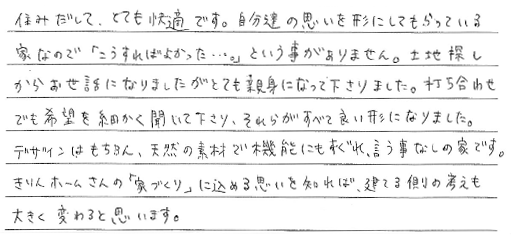 住みだして、とても快適です。自分達の思いを形にしてもらっている
家なので「こうすればよかった…。」という事がありません。土地探し
からお世話になりましたがとても親身になって下さりました。打ち合わせ
でも希望を細かく聞いて下さり、それらがすべて良い形になりました。
デザインはもちろん、天然の素材で機能にもすぐれ、言う事なしの家です。
きりんホームさんの「家づくり」に込める思いを知れば、建てる側の考えも
大きく変わると思います。